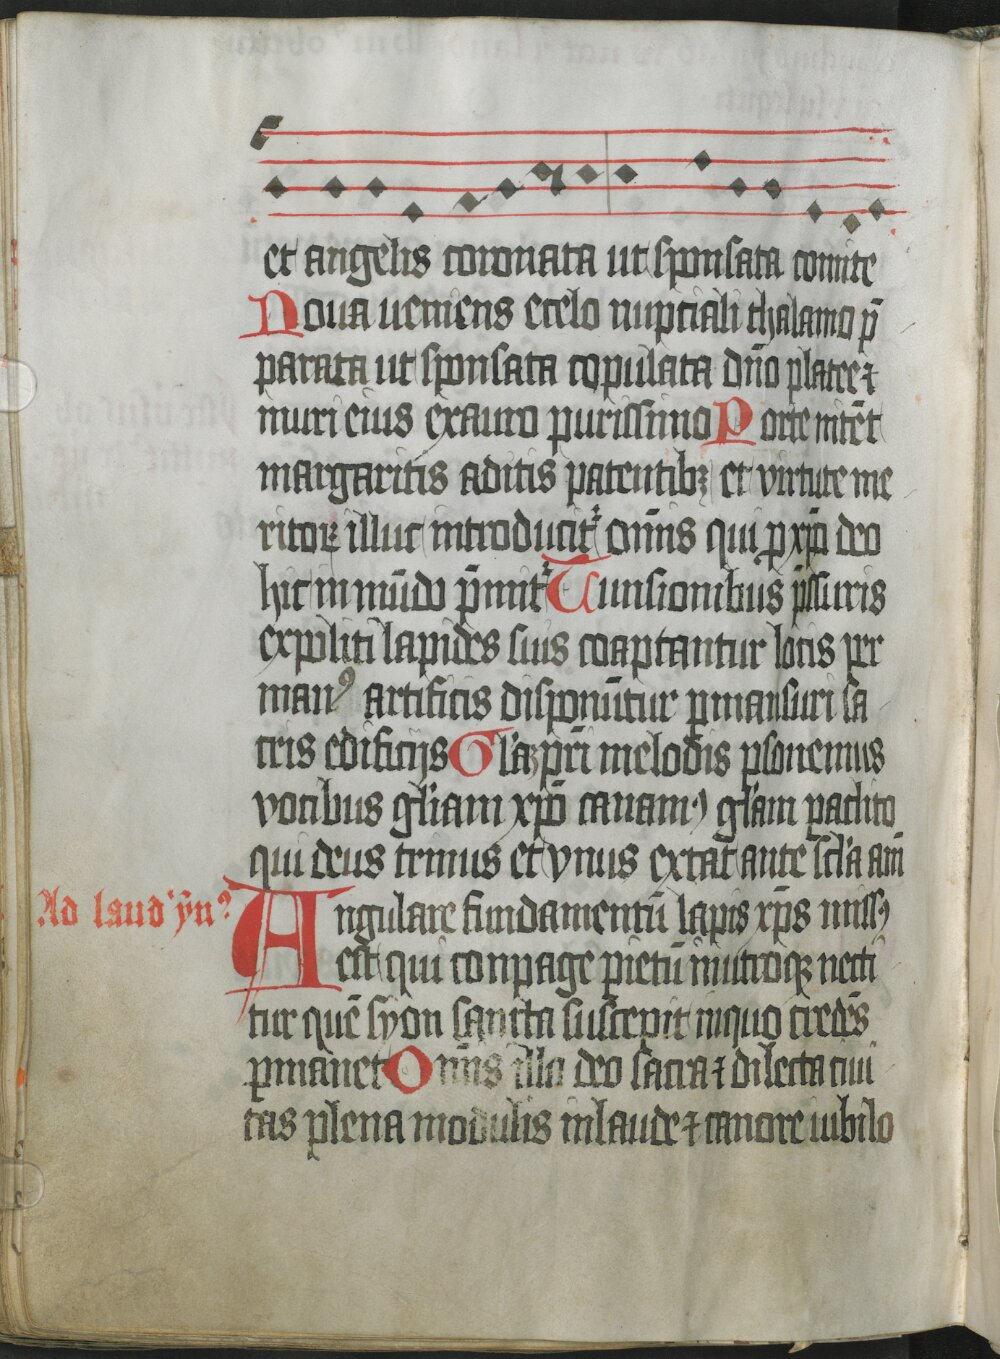 et angelis coronata ut sponsata comite
Noua ueniens ecelo nuptiali thalamo p̄
parata ut sponsata copulata dn̄o platee ⁊
muri eius exauro purissimo Porte nitēt
margaritis aditis patentibꝫ et virtute me
ritoꝝ illuc introducit᷑ om̄is qui ꝑ xp̄i deo
hic in mūdo p̄mit᷑ Tunsionibus p̄ssuris
expoliti lapides suis coaptantur locis per
manꝰ artificis disponūtur ꝑmansuri sa
cris edificijs Gl'a ꝫ pr̄i melodis ꝑsonemus
vocibus gl'iam xp̄o canamꝰ gl'am paclito
qui deus trinus et vnus extat ante scl'a am̄
Ad laud' ym̄ꝰ
Angulare fundamentū lapis xp̄s missꝰ
est qui conpage pietū inutroqꝫ necti
tur quē syon sancta suscepit inquo credēs
ꝑmanet Om̄is illa deo sacra ⁊ dilecta ciui
tas plena modulis inlaude ⁊ canore iubilo